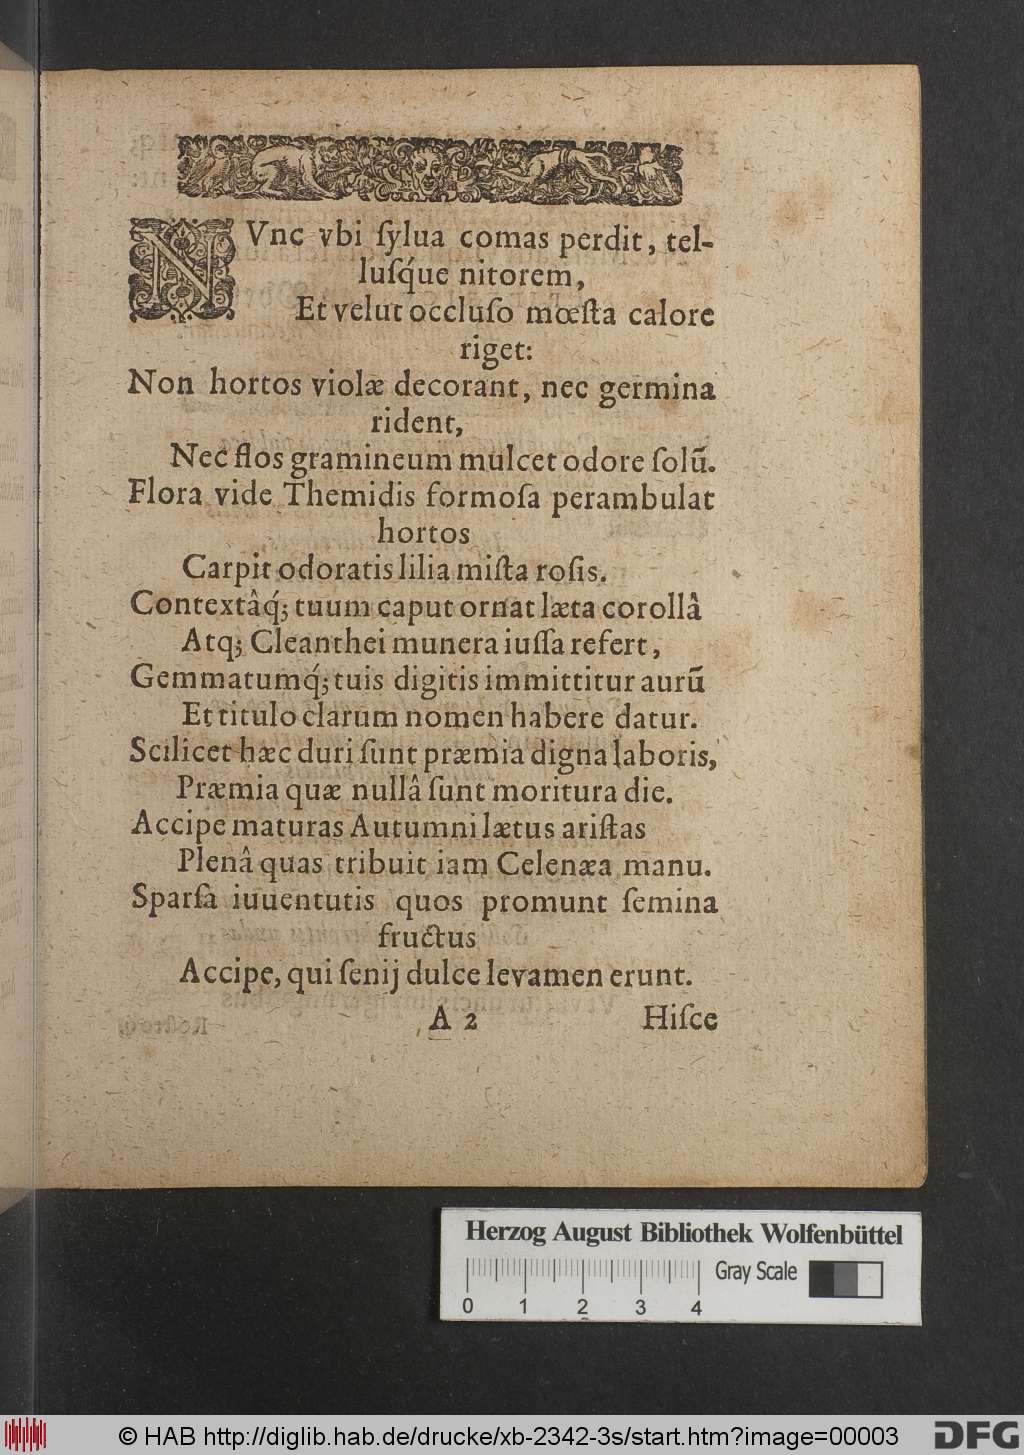 NVnc vbi ſylua comas perdit, tel-
luſq́ue nitorem,
Et velut occluſo mœſta calore
riget:
Non hortos violæ decorant, nec germina
rident,
Nec flos gramineum mulcet odore ſolũ.
Flora vide Themidis formoſa perambulat
hortos
Carpit odoratis lilia miſta roſis.
Contextâq́; tuum caput ornat læta corollâ
Atq; Cleanthei munera iuſſa refert,
Gemmatumq́; tuis digitis immittitur aurũ
Et titulo clarum nomen habere datur.
Scilicet hæc duri ſunt præmia digna laboris,
Præmia quæ nullâ ſunt moritura die.
Accipe maturas Autumni lætus ariſtas
Plenâ quas tribuit iam Celenæa manu.
Sparſa iuuentutis quos promunt ſemina
fructus
Accipe, qui ſenij dulce levamen erunt.
A 2 Hiſce
Herzog August Bibliothek Wolfenbüttel
Gray Scale
0 1 2 3 4
© HAB http://diglib.hab.de/drucke/xb-2342-3s/start.htm?image=00003
DFG